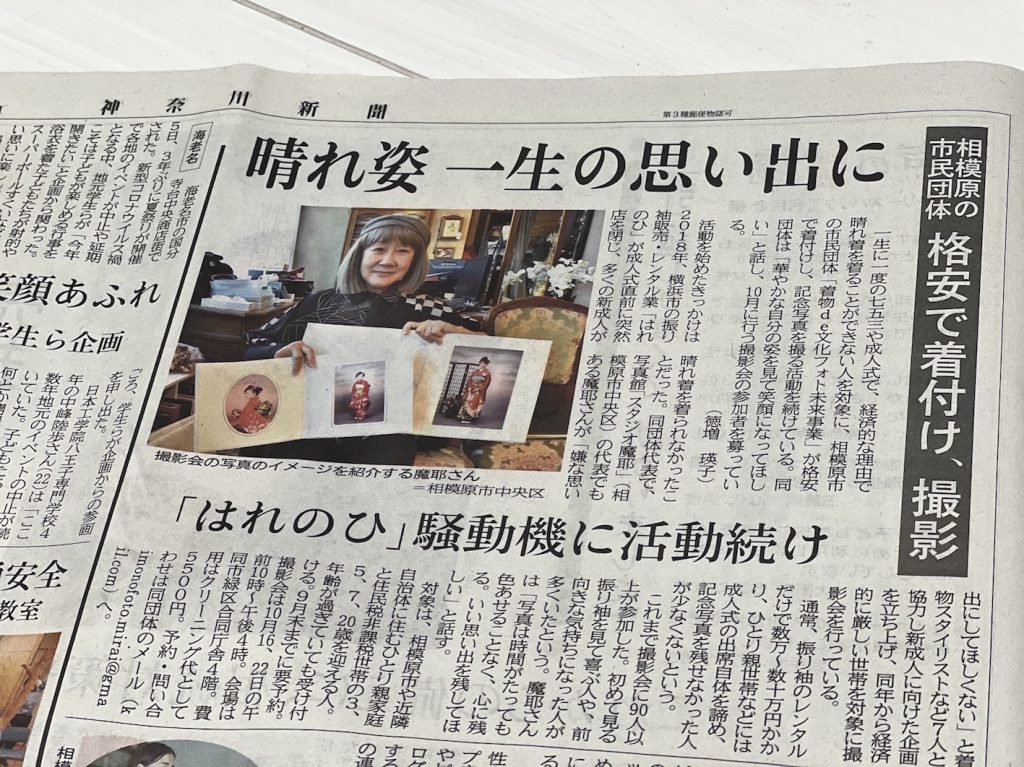 神奈川新聞
第3種郵便物認可
相模原の
市民団体
格安で着付け、撮影
晴れ姿 一生の思い出に
一生に一度の七五三や成人式で、経済的な理由で
晴れ着を着ることができない人を対象に、相模原市
の市民団体「着物de文化フォト未来事業」が格安
で着付けし、記念写真を撮る活動を続けている。同
団体は「華やかな自分の姿を見て笑顔になってほし
い」と話し、10月に行う撮影会の参加者を募ってい
る。
(徳増 瑛子)
活動を始めたきっかけは
2018年、横浜市の振り
袖販売・レンタル業「はれ
のひ」が成人式直前に突然
店を閉じ、多くの新成人が
晴れ着を着られなかったこ
とだった。同団体代表で、
写真館「スタジオ魔耶」(相
模原市中央区)の代表でも
ある魔耶さんが「嫌な思い
撮影会の写真のイメージを紹介する魔耶さん
=相模原市中央区
「はれのひ」騒動機に活動続け
出にしてほしくない」と着
物スタイリストなど7人と
協力し新成人に向けた企画
を立ち上げ、同年から経済
的に厳しい世帯を対象に撮
影会を行っている。
通常、振り袖のレンタル
だけで数万~数十万円かか
り、ひとり親世帯などには
成人式の出席自体を諦め、
記念写真を残せなかった人
が少なくないという。
これまで撮影会に90人以
上が参加した。初めて見る
振り袖を見て喜ぶ人や、前
向きな気持ちになった人が
多くいたという。魔耶さん
は「写真は時間がたっても
色あせることなく、心に残
る。いい思い出を残してほ
しい」と話す。
対象は、相模原市や近隣
自治体に住むひとり親家庭
と住民税非課税世帯の3、
5、7、20歳を迎える人。
年齢が過ぎていても受け付
ける。9月末までに要予約。
撮影会は10月16、22日の午
前10時~午後4時。会場は
同市緑区合同庁舎4階。費
用はクリーニング代として
5500円。予約・問い合
わせは同団体のメール(k
imonofoto.mirai@gma
il.com)へ。
海老名
海老名市の国分
寺台中央商店街で
5日、3年ぶりに夏祭りが開催
された。新型コロナウイルス禍
で各地のイベントが中止や延期
となる中、地元学生らが「今年
こそは子どもが楽しめる行事を
開きたい」と企画から関わった。
浴衣を着た子どもたちが射的や
笑顔あふれ
学生ら企画
ごろ、学生らが企画からの参画
を申し出た。
日本工学院八王子専門学校4
年の中峰陸歩さん(22)は「ここ
数年地元のイベントの中止が続
いていた。
安全
教室